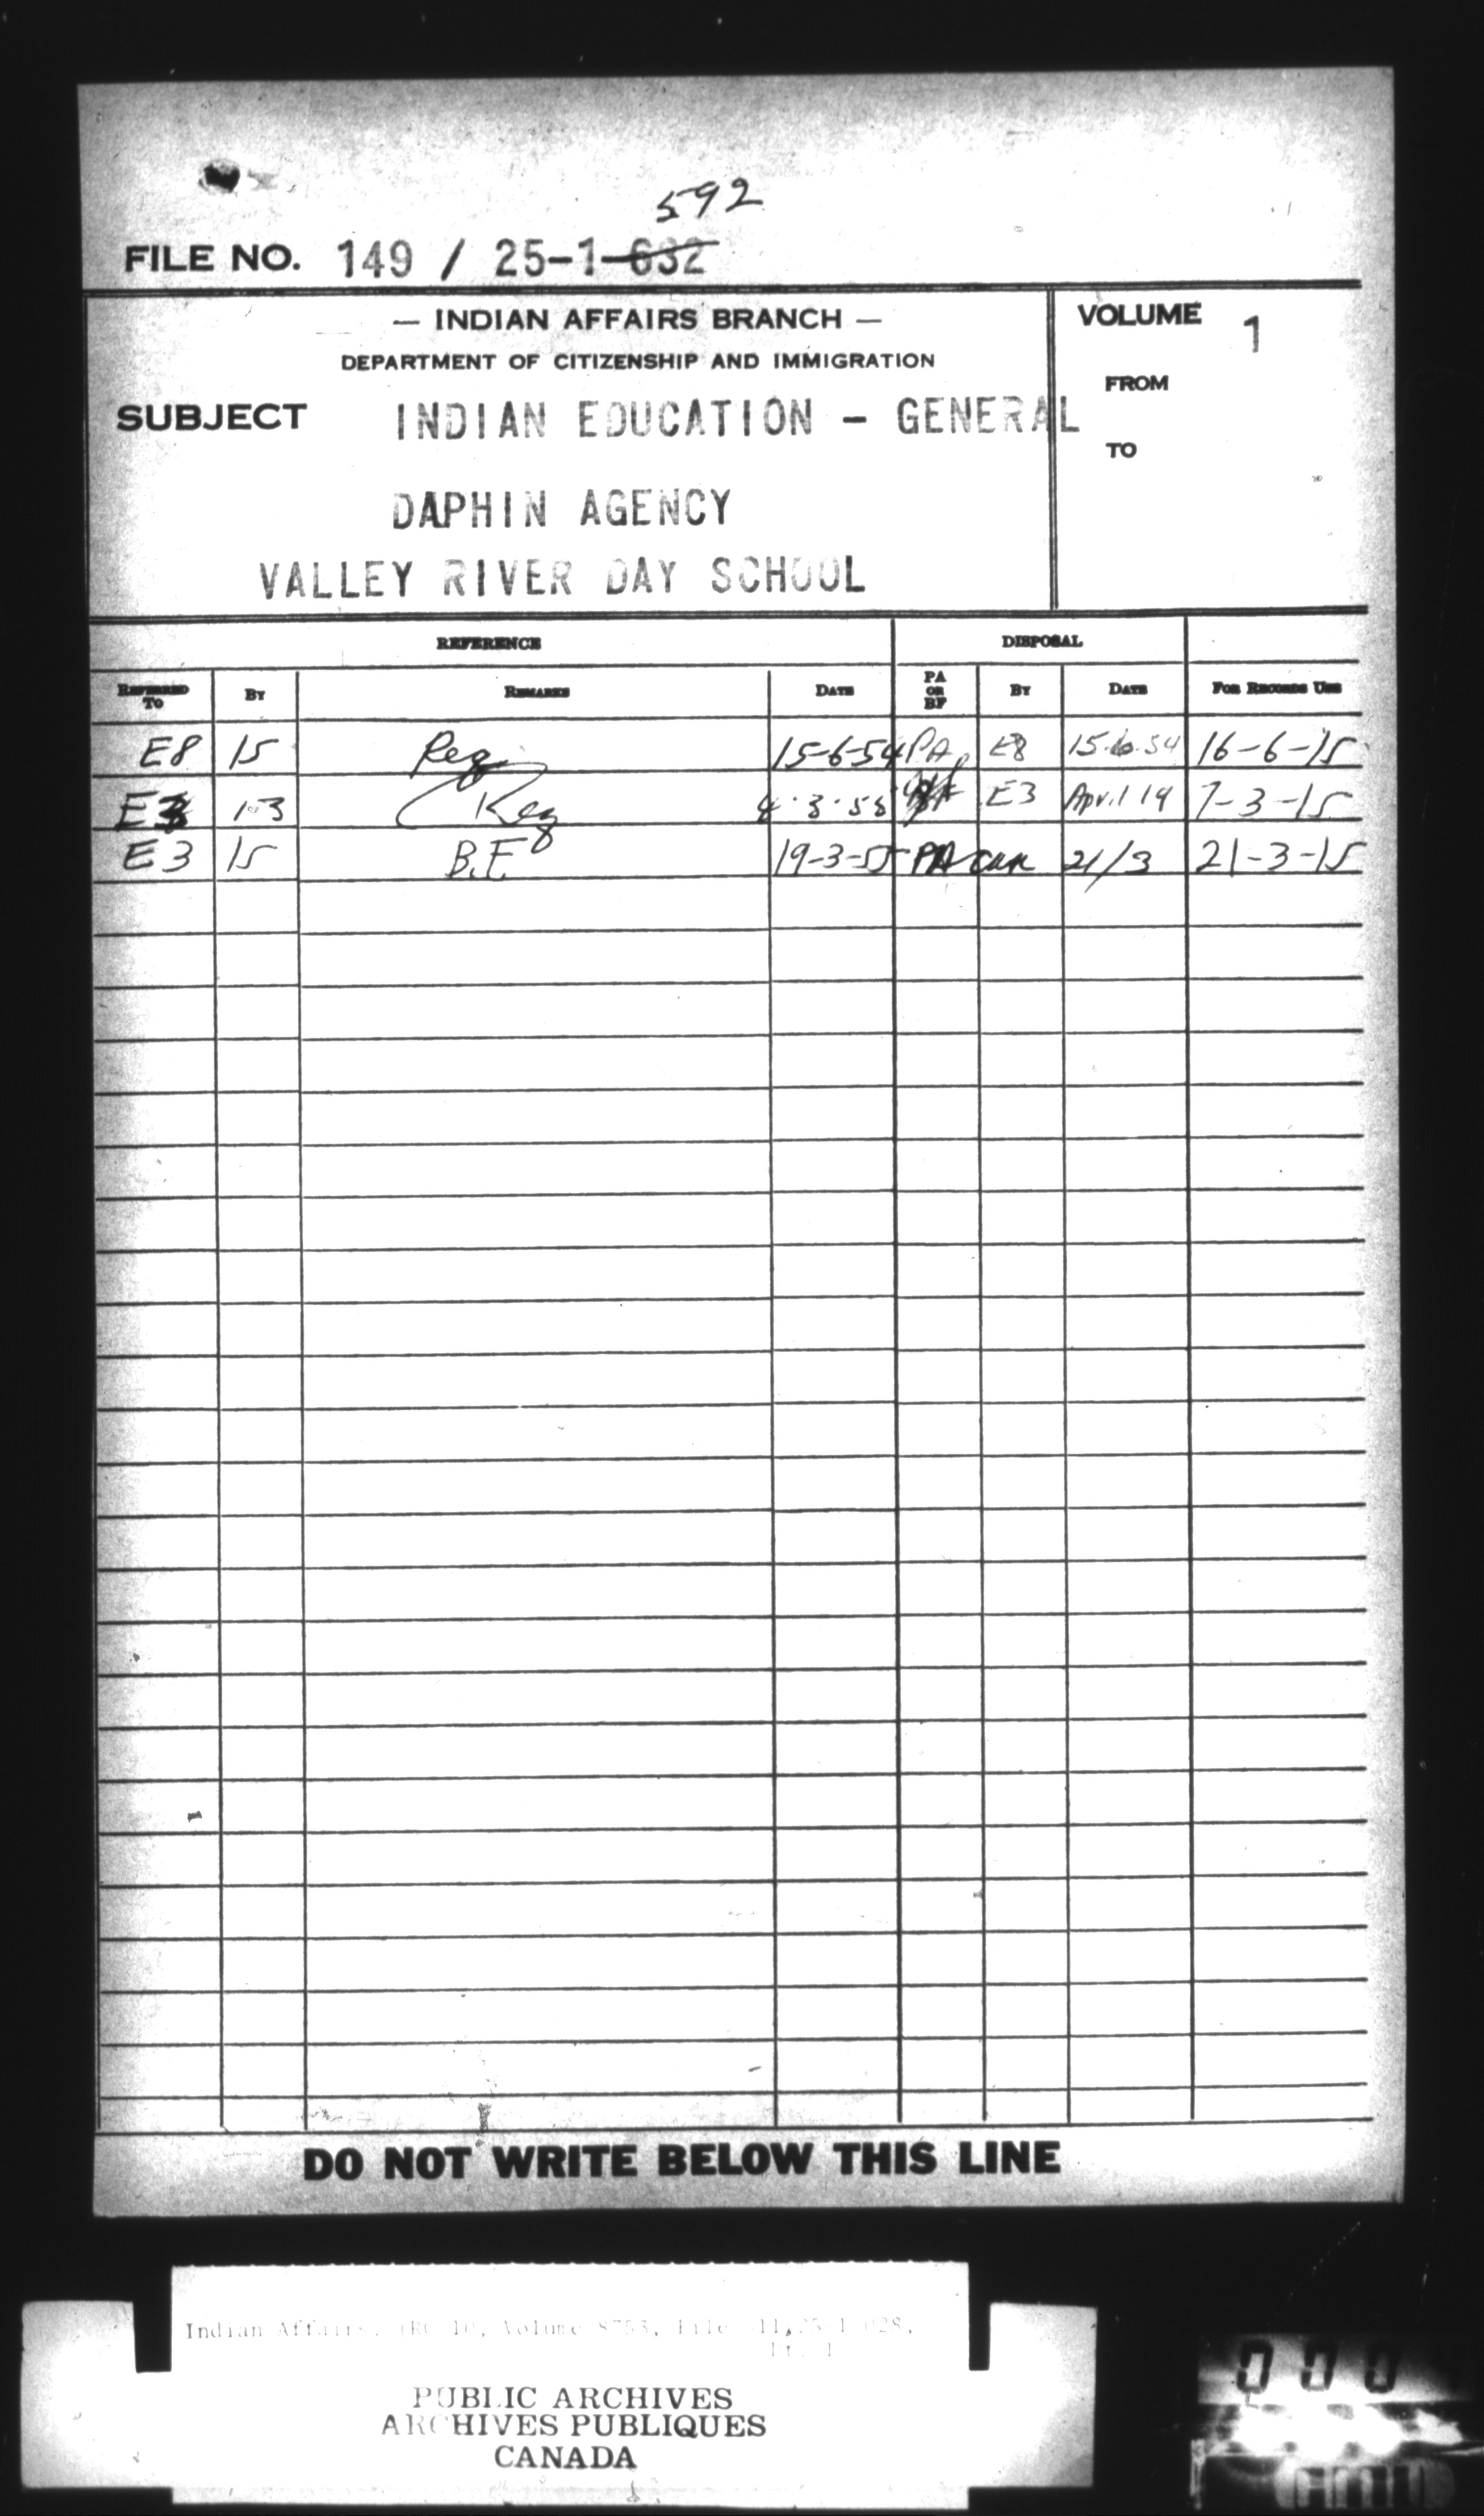 592
FILE NO. 149 / 25-1-632
— INDIAN AFFAIRS BRANCH —
DEPARTMENT OF CITIZENSHIP AND IMMIGRATION
SUBJECT INDIAN EDUCATION - GENERAL
DAPHIN AGENCY
VALLEY RIVER DAY SCHOOL
VOLUME 1
FROM
TO
REFERENCE DISPOSAL
REFERRED TO BY REMARKS DATE PA OR BF BY DATE FOR RECORDS USE
E8 15 Reg 15-6-54 PA E8 15.6.54 16-6-15
E3 13 Reg 4.3.55 E3 April 19 7-3-15
E3 15 B.F. 19-3-55 PA 21/3 21-3-15
DO NOT WRITE BELOW THIS LINE
Indian Affairs. (RG 10, Volume 8753, File
PUBLIC ARCHIVES
ARCHIVES PUBLIQUES
CANADA